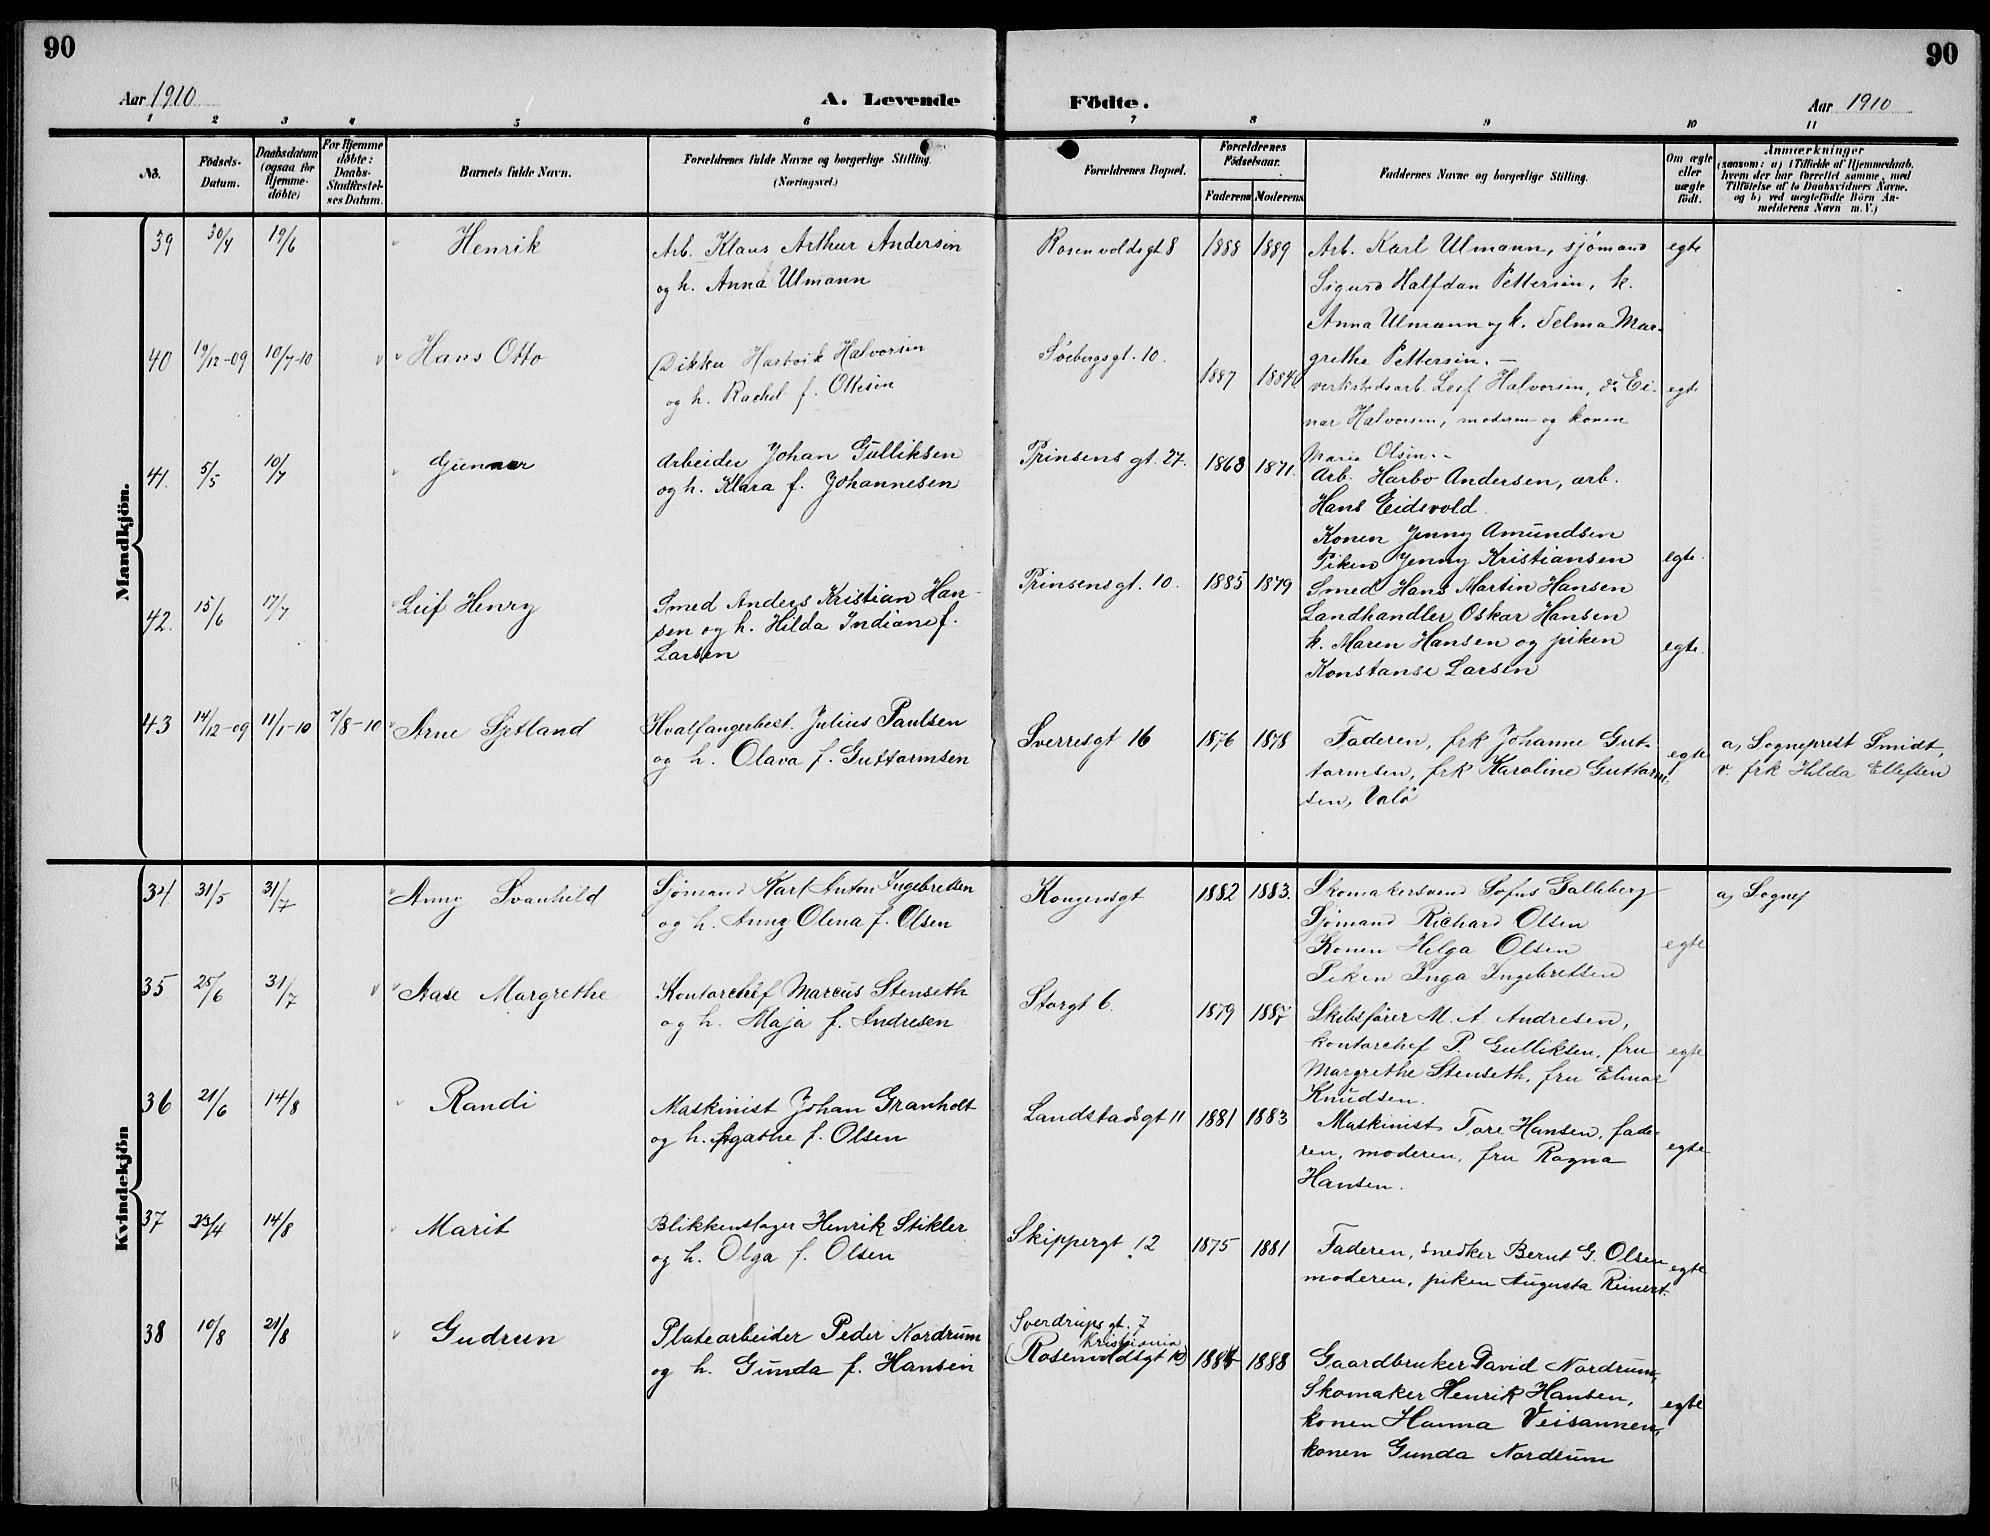 90
90
Aar 1910
A. Levende Födte.
Aar 1910
1 2 3 4 5 6 7 8 9 10 11
No.
Födsels-Datum.
Daabsdatum (ogsaa for Hjemme-döbte)
For Hjemme döbte: Daabs-Stadfæstel-ses Datum.
Barnets fulde Navn.
Forældrenes fulde Navne og borgerlige Stilling. (Næringsvei.)
Forældrenes Bopæl.
Forældrenes Födselsaar.
Faderens Moderens
Faddernes Navne og borgerlige Stilling.
Om ægte eller uægte født.
Anmærkninger
(saasom: a) i Tilfælde af Hjemmedaab, hvem der har forrettet samme, med Tilföielse af to Daabsvidners Navne, og b) ved uægtefödte Börn An-melderens Navn m. V.)
Mandkjön.
39 30/4 19/6 Henrik
Arb. Klaus Arthur Andersen
og h. Anna Ulmann
Rosenvoldsgt 8 1888 1889
Arb. Karl Ulmann, sjømand
Sigurd Halfdan Pettersen, k.
Anna Ulmann og k. Selma Mar-
grethe Pettersen. —
egte
40 19/12-09 10/7-10 Hans Otto
Dikker Hartvik Halvorsen
og h. Rachel f. Ottesen
Söebergsgt. 10. 1887 1884
verkstedsarb. Leif Halvorsen, do. Ei-
nar Halvorsen, moderen og konen
Marie Olsen. -
egte
41. 5/5 10/7 Gunnar
Arbeider Johan Gulliksen
og h. Klara f. Johannesen
Prinsens gt. 27. 1868 1871.
Arb. Harbo Andersen, arb.
Hans Eidsvold.
Konen Jenny Amundsen
Piken Jenny Kristiansen
egte.
42. 15/6 17/7 Leif Henry
Smed Anders Kristian Han-
sen og h. Hilda Indiane f.
Larsen
Prinsensgt. 10. 1885 1879
Smed Hans Martin Hansen
Landhandler Oskar Hansen
k. Maren Hansen og piken
Konstanse Larsen
egte.
43 14/12-09 11/1-10 7/8-10 Arne Sjetland
Hvalfangerbest. Julius Paulsen
og h. Olava f. Guttormsen
Sverresgt 16 1876 1878
Faderen, frk Johanne Gut-
tormsen, frk Karoline Guttorm-
sen, Valø
egte
a, Sogneprest Smidt,
v. frk Hilda Ellefsen
Kvindekjön
34. 31/5 31/7 Anny Svanhild
Sjømand Karl Anton Ingebretsen
og h. Anny Olena f. Olsen
Kongensgt 1882 1883.
Skomakersvend Sofus Galleberg
Sjömand Richard Olsen
Konen Helga Olsen
Piken Inga Ingebretsen
egte
a, Sognep
35 25/6 31/7 Aase Margrethe
Kontorchef Marcus Stenseth
og h. Maja f. Andresen
Storgt 6. 1879 1887
Skibsfører M. A. Andresen,
kontorchef P. Gulliksen, fru
Margrethe Stenseth, fru Elinar
Knudsen.
egte
36 21/6 14/8 Randi
Maskinist Johan Granholt
og h. Agathe f. Olsen
Landstadsgt 11 1881 1883
Maskinist Tore Hansen, fade-
ren, moderen, fru Ragna
Hansen.
egte
37 23/4 14/8 Marit
Blikkenslager Henrik Stikler
og h. Olga f. Olsen
Skippergt 12 1875 1881
Faderen, snedker Bernt G. Olsen
moderen, piken Augusta Reinert.
egte
38 10/8 21/8 Gudrun
Platearbeider Peder Nordrum
og h. Gunda f. Hansen
Sverdrups gt. 7
Kristiania
(Rosenvoldsgt 10) 1884 1888
Gaardbruker David Nordrum,
Skomaker Henrik Hansen,
konen Hanna Veisannen,
konen Gunda Nordrum
egte